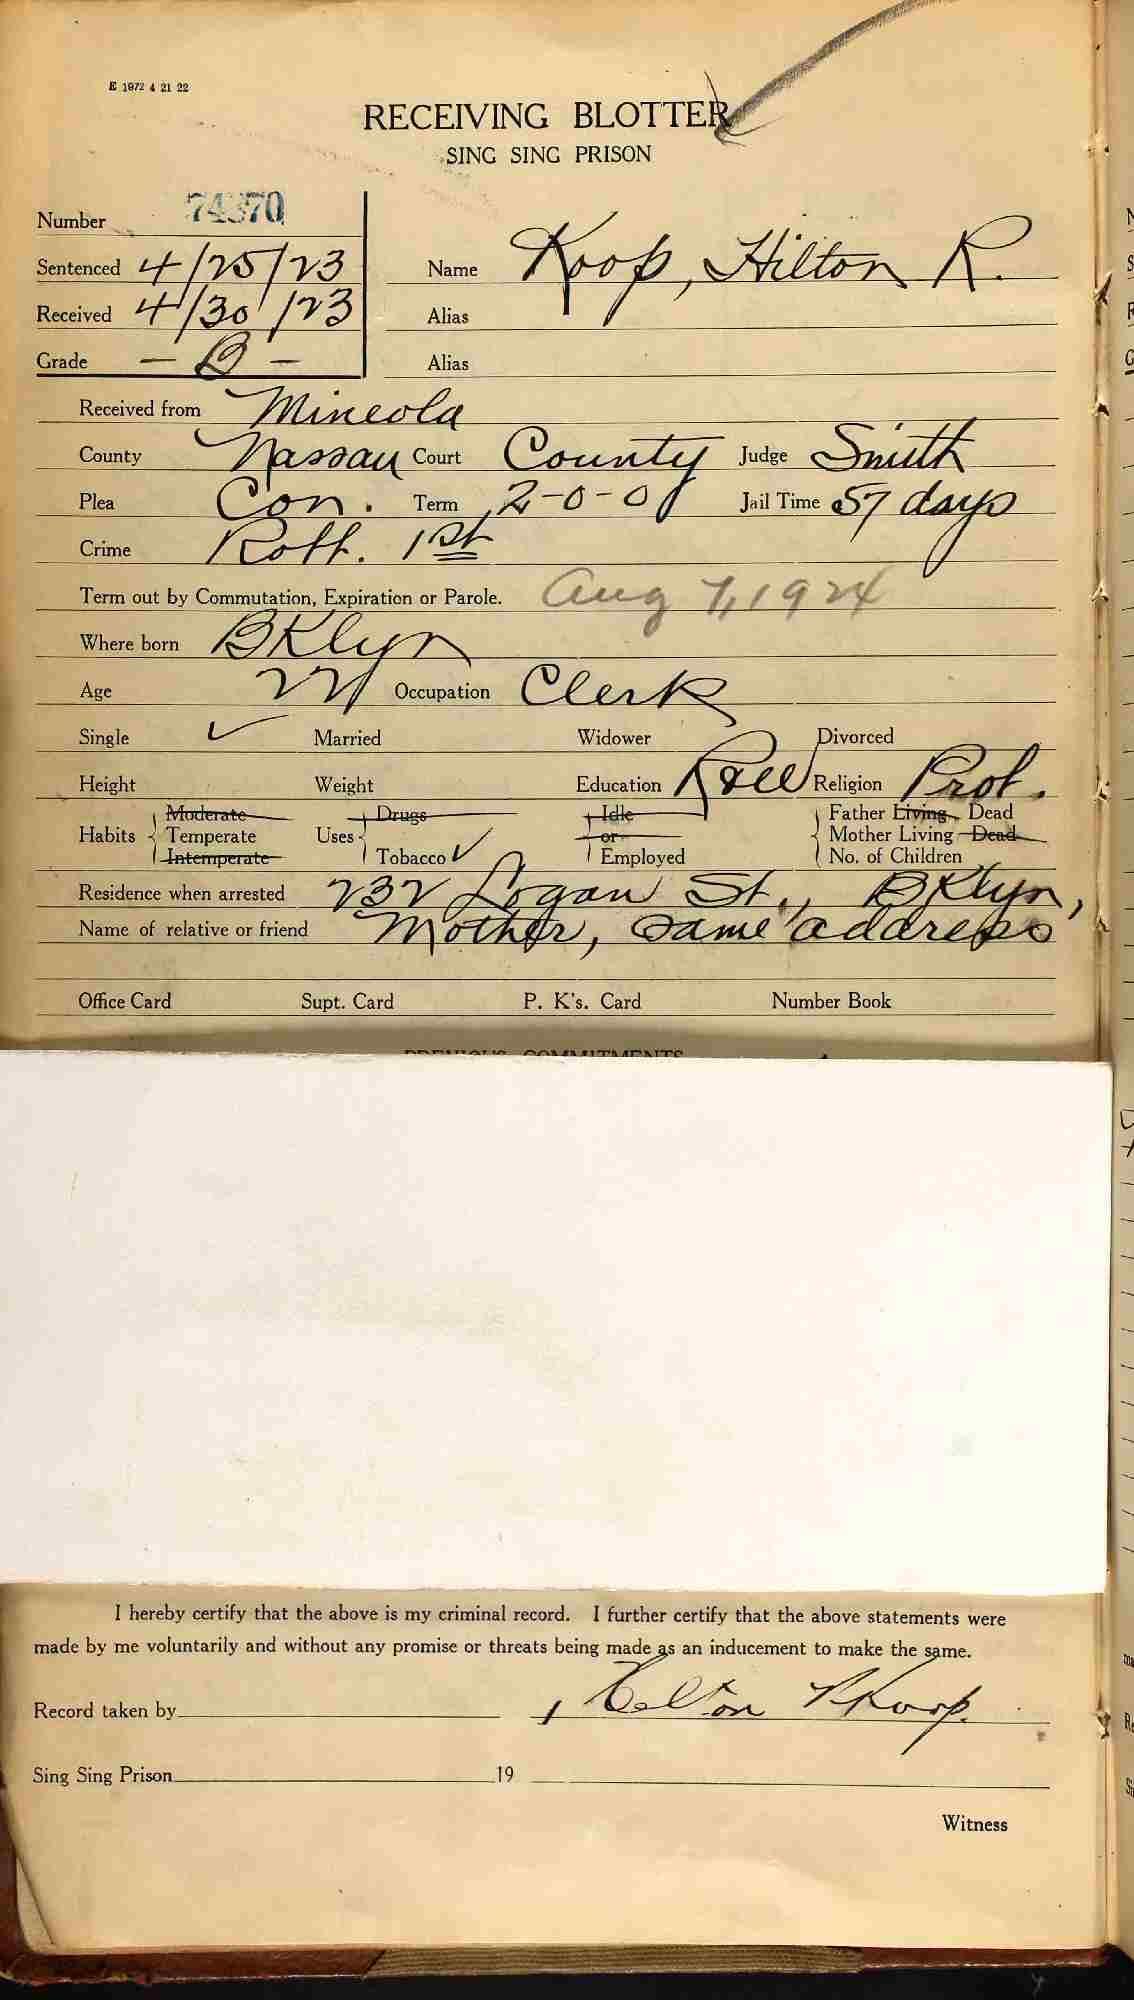 E 1972 4 21 22
RECEIVING BLOTTER
SING SING PRISON
Number 74370
Sentenced 4/25/23 Name Koop, Hilton R.
Received 4/30/23 Alias
Grade - B - Alias
Received from Mineola
County Nassau Court County Judge Smith
Plea Con. Term 2-0-0 Jail Time 57 days
Crime Robb. 1st
Term out by Commutation, Expiration or Parole. Aug 7, 1924
Where born BKlyn
Age 22 Occupation Clerk
Single ✓ Married Widower Divorced
Height Weight Education Religion Prot.
Moderate Drugs Idle Father Living Dead
Habits Temperate Uses or Mother Living Dead
Intemperate Tobacco ✓ Employed No. of Children
Residence when arrested 232 Logan St., BKlyn,
Name of relative or friend Mother, same address
Office Card Supt. Card P. K's. Card Number Book
PREVIOUS COMMITMENTS
I hereby certify that the above is my criminal record. I further certify that the above statements were
made by me voluntarily and without any promise or threats being made as an inducement to make the same.
Record taken by Hilton R Koop.
Sing Sing Prison 19
Witness